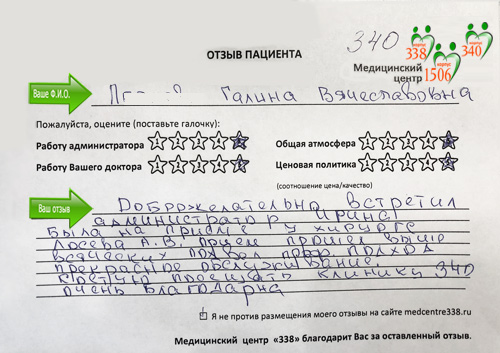 340
ОТЗЫВ ПАЦИЕНТА
корпус 338
корпус 340
корпус 1506
Медицинский центр
Ваше Ф.И.О.
Галина Вячеславовна
Пожалуйста, оцените (поставьте галочку):
Работу администратора 1 2 3 4 5
Общая атмосфера 1 2 3 4 5
Работу Вашего доктора 1 2 3 4 5
Ценовая политика 1 2 3 4 5
(соотношение цена/качество)
Ваш отзыв
Доброжелательно встретил
администратор Ирина!
Была на приеме у хирурга
Лосева А.В. прием прошел выше
всяческих похвал проф подход
прекрасное обслуживание
советую посещать клинику 340
очень благодарна
Я не против размещения моего отзывы на сайте medcentre338.ru
Медицинский центр «338» благодарит Вас за оставленный отзыв.